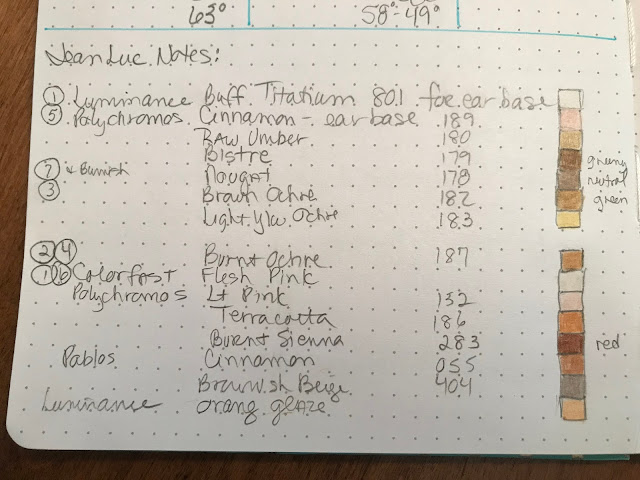 63° 58°-49°
Jean Luc Notes:
① Luminance Buff Titatium 801 for ear base
⑤ Polychromos Cinnamon - ear base 189
RAw Umber 180
Bistre 179 greeny
⑦ & Burnish Nougat 178 neutral
③ Brown Ochre 182 green
Light Ylw Ochre 183
② ④ Burnt Ochre 187
① ⑥ Colorfast Flesh Pink
Polychromos Lt Pink 132
Terracotta 186
Burnt Sienna 283 red
Pablos Cinnamon 055
Brownish Beige 404
Luminance orang glaze